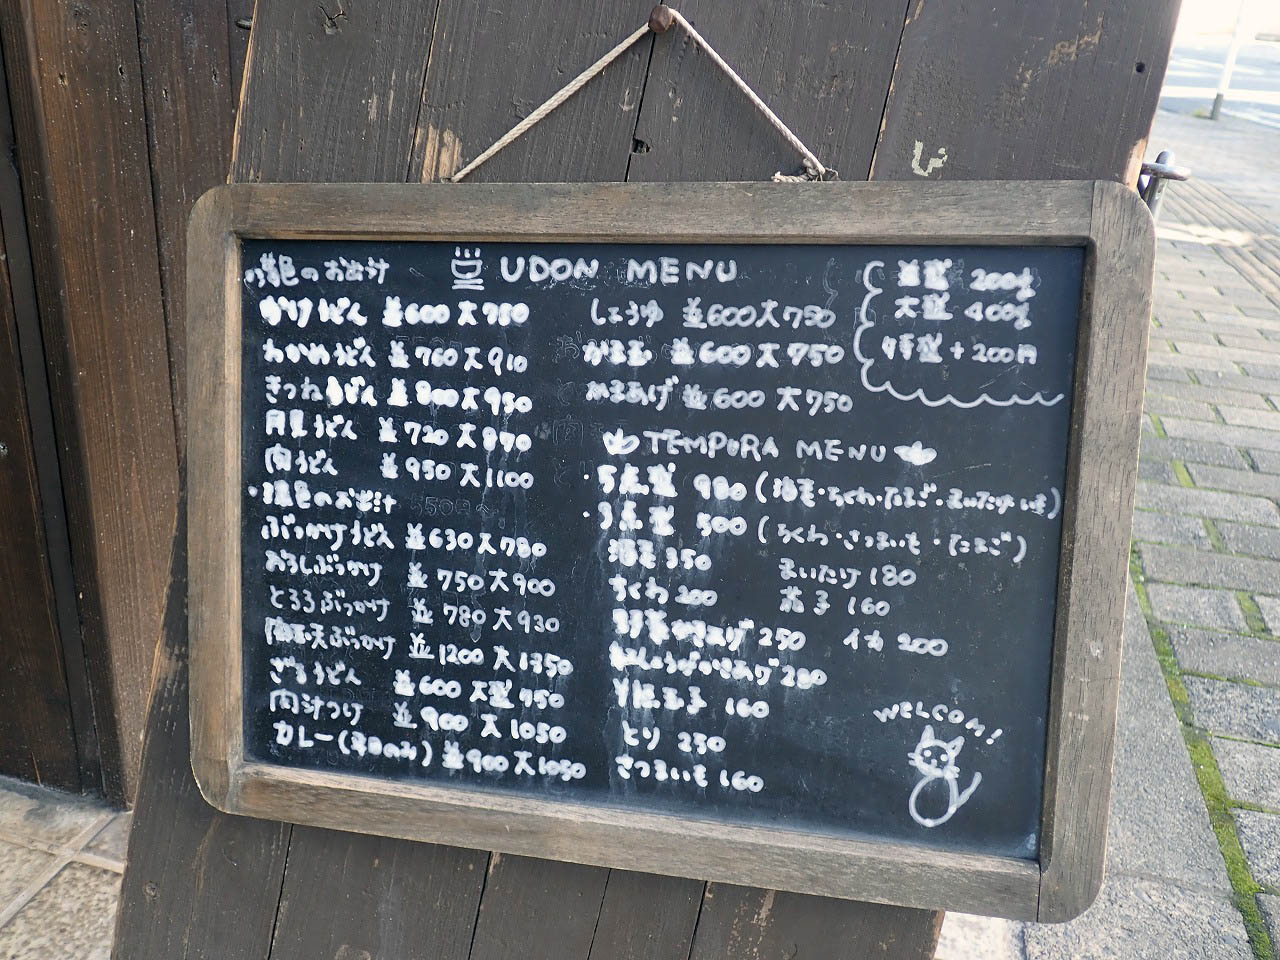 UDON MENU
のお出汁
かけうどん 並600 大750
わかめうどん 並760 大910
きつねうどん 並800 大950
月見うどん 並720 大870
肉うどん 並950 大1100
のお出汁
ぶっかけうどん 並630 大780
おろしぶっかけ 並750 大900
とろろぶっかけ 並780 大930
海老天ぶっかけ 並1200 大1350
ざるうどん 並600 大盛750
肉汁つけ 並900 大1050
カレー(平日のみ) 並900 大1050
しょうゆ 並600 大750
かまたま 並600 大750
かまあげ 並600 大750
並盛 200g
大盛 400g
特盛 +200円
TEMPURA MENU
・5点盛 980 (海老・ちくわ・たまご・まいたけ・いも)
・3点盛 500 (ちくわ・さつまいも・たまご)
海老 350 まいたけ 180
ちくわ 200 茄子 160
野菜かきあげ 250 イカ 200
紅しょうがかきあげ 280
半熟玉子 160
とり 230
さつまいも 160
WELCOM!